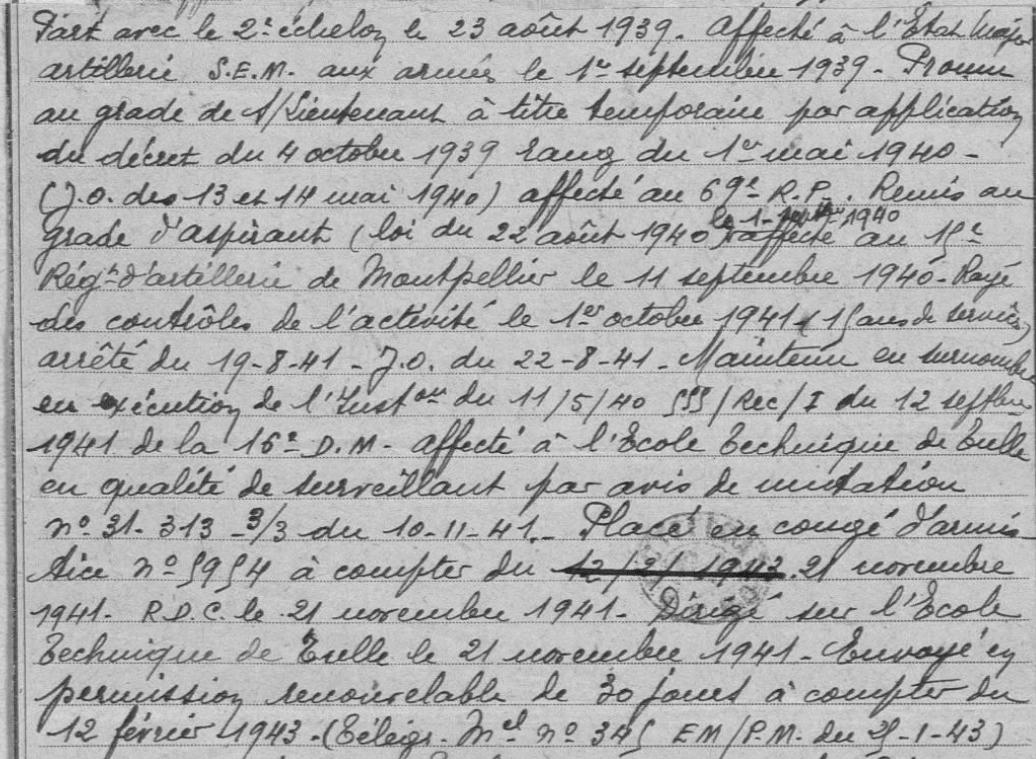 Part avec le 2e échelon le 23 août 1939. Affecté à l'Etat Major
artillerie S.E.M. aux armées le 1er septembre 1939 - Promu
au grade de S/Lieutenant à titre temporaire par application
du décret du 4 octobre 1939 rang du 1er mai 1940 -
(J.O. des 13 et 14 mai 1940) affecté au 69e R.P. Remis au
grade d'aspirant (loi du 22 août 1940) le 1- 1940 affecté au 15e
Régnt d'artillerie de Montpellier le 11 septembre 1940 - Rayé
des contrôles de l'activité le 1er octobre 1941 (15 ans de services,
arrêté du 19-8-41 - J.O. du 22-8-41 - Maintenu en surnombre
en exécution de l'Inston du 11/5/40 555/Rec/I du 12 septbre
1941 de la 16e D.M. affecté à l'Ecole Technique de Tulle
en qualité de surveillant par avis de mutation
n° 31-313 -3/3 du 10-11-41 - Placé en congé d'armis
tice n° 5954 à compter du 12/2/1942 21 novembre
1941 - R.D.C. le 21 novembre 1941 - Dirigé sur l'Ecole
Technique de Tulle le 21 novembre 1941 - Envoyé en
permission renouvelable de 30 jours à compter du
12 février 1943 - (Télégr. Mel n° 345 EM/P.M. du 25-1-43)